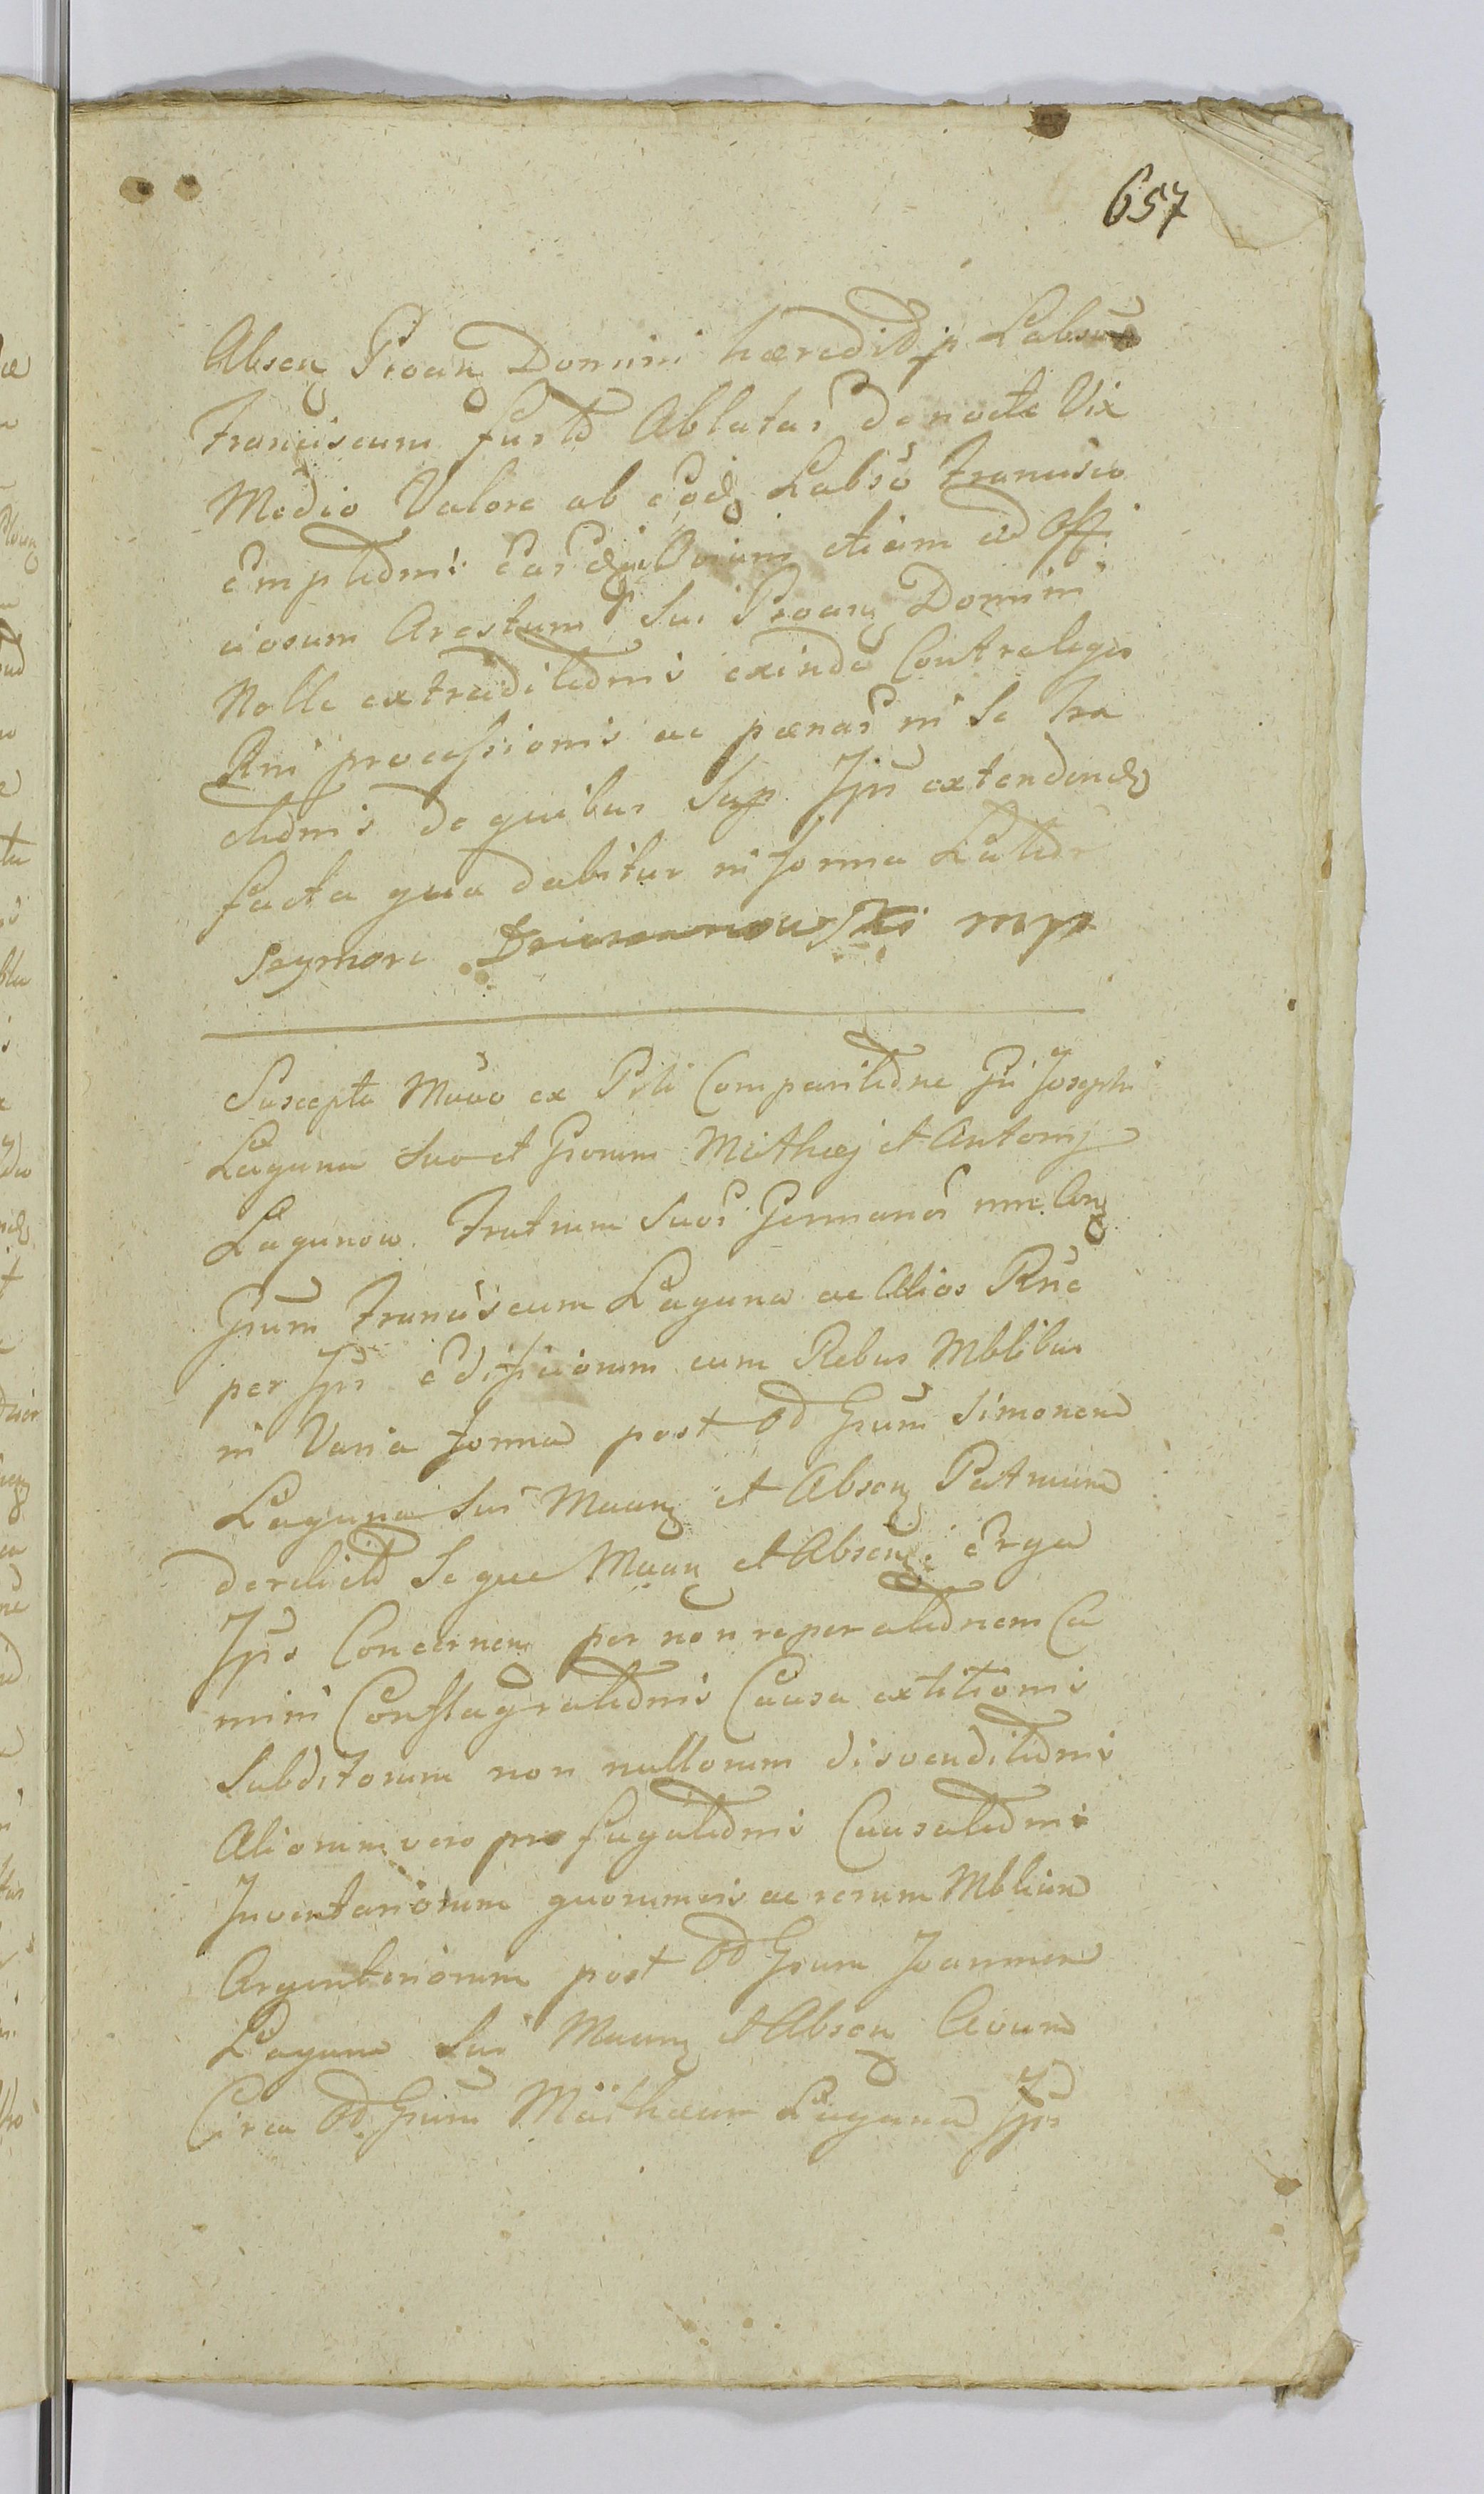 657
Absen Proan Domini haeredit p Labsum
Franciscum furto Ablatas de nocte Vix
Medio Valore ab eod Labso Francisco
Emptionis Eas etiam ad Offi
ciosum Arestum Sui Proan Domini
Nolle extraditionis exinde Contra leges
Rni processionis ac paenas in Se tra
ctionis de quibus Sup Jpsi extendend
facta qua dabitur in forma Latiori
Szymon mpp
Suscepta Mano ex Psli Comparitione Gsi Josephi
Laguna Suo et Gsorum Mathaej et Antonij
Lagunow Fratrum Suor Germanor nne Con
Gsum Franciscum Laguna ac Alios Rne
per Jpsi Edificiorum cum Rebus Mblibus
in Varia forma post Od Gsum Simonem
Laguna Sui Maan et Absen Patruum
derelict Seque Maan et Absen Erga
Jpso Concernen per non reperationem Ca
mini Conflagrationis Causa extitionis
Subditorum non nullorum disvenditionis
Aliorum vero profugationis Causationis
Inventariorum quorumvis ac rerum Mblium
Argenteriorum post Od Gsum Joannem
Laguna Sui Maan et Absen Avum
Circa Od Gsum Mathaeum Laguna Jpsi